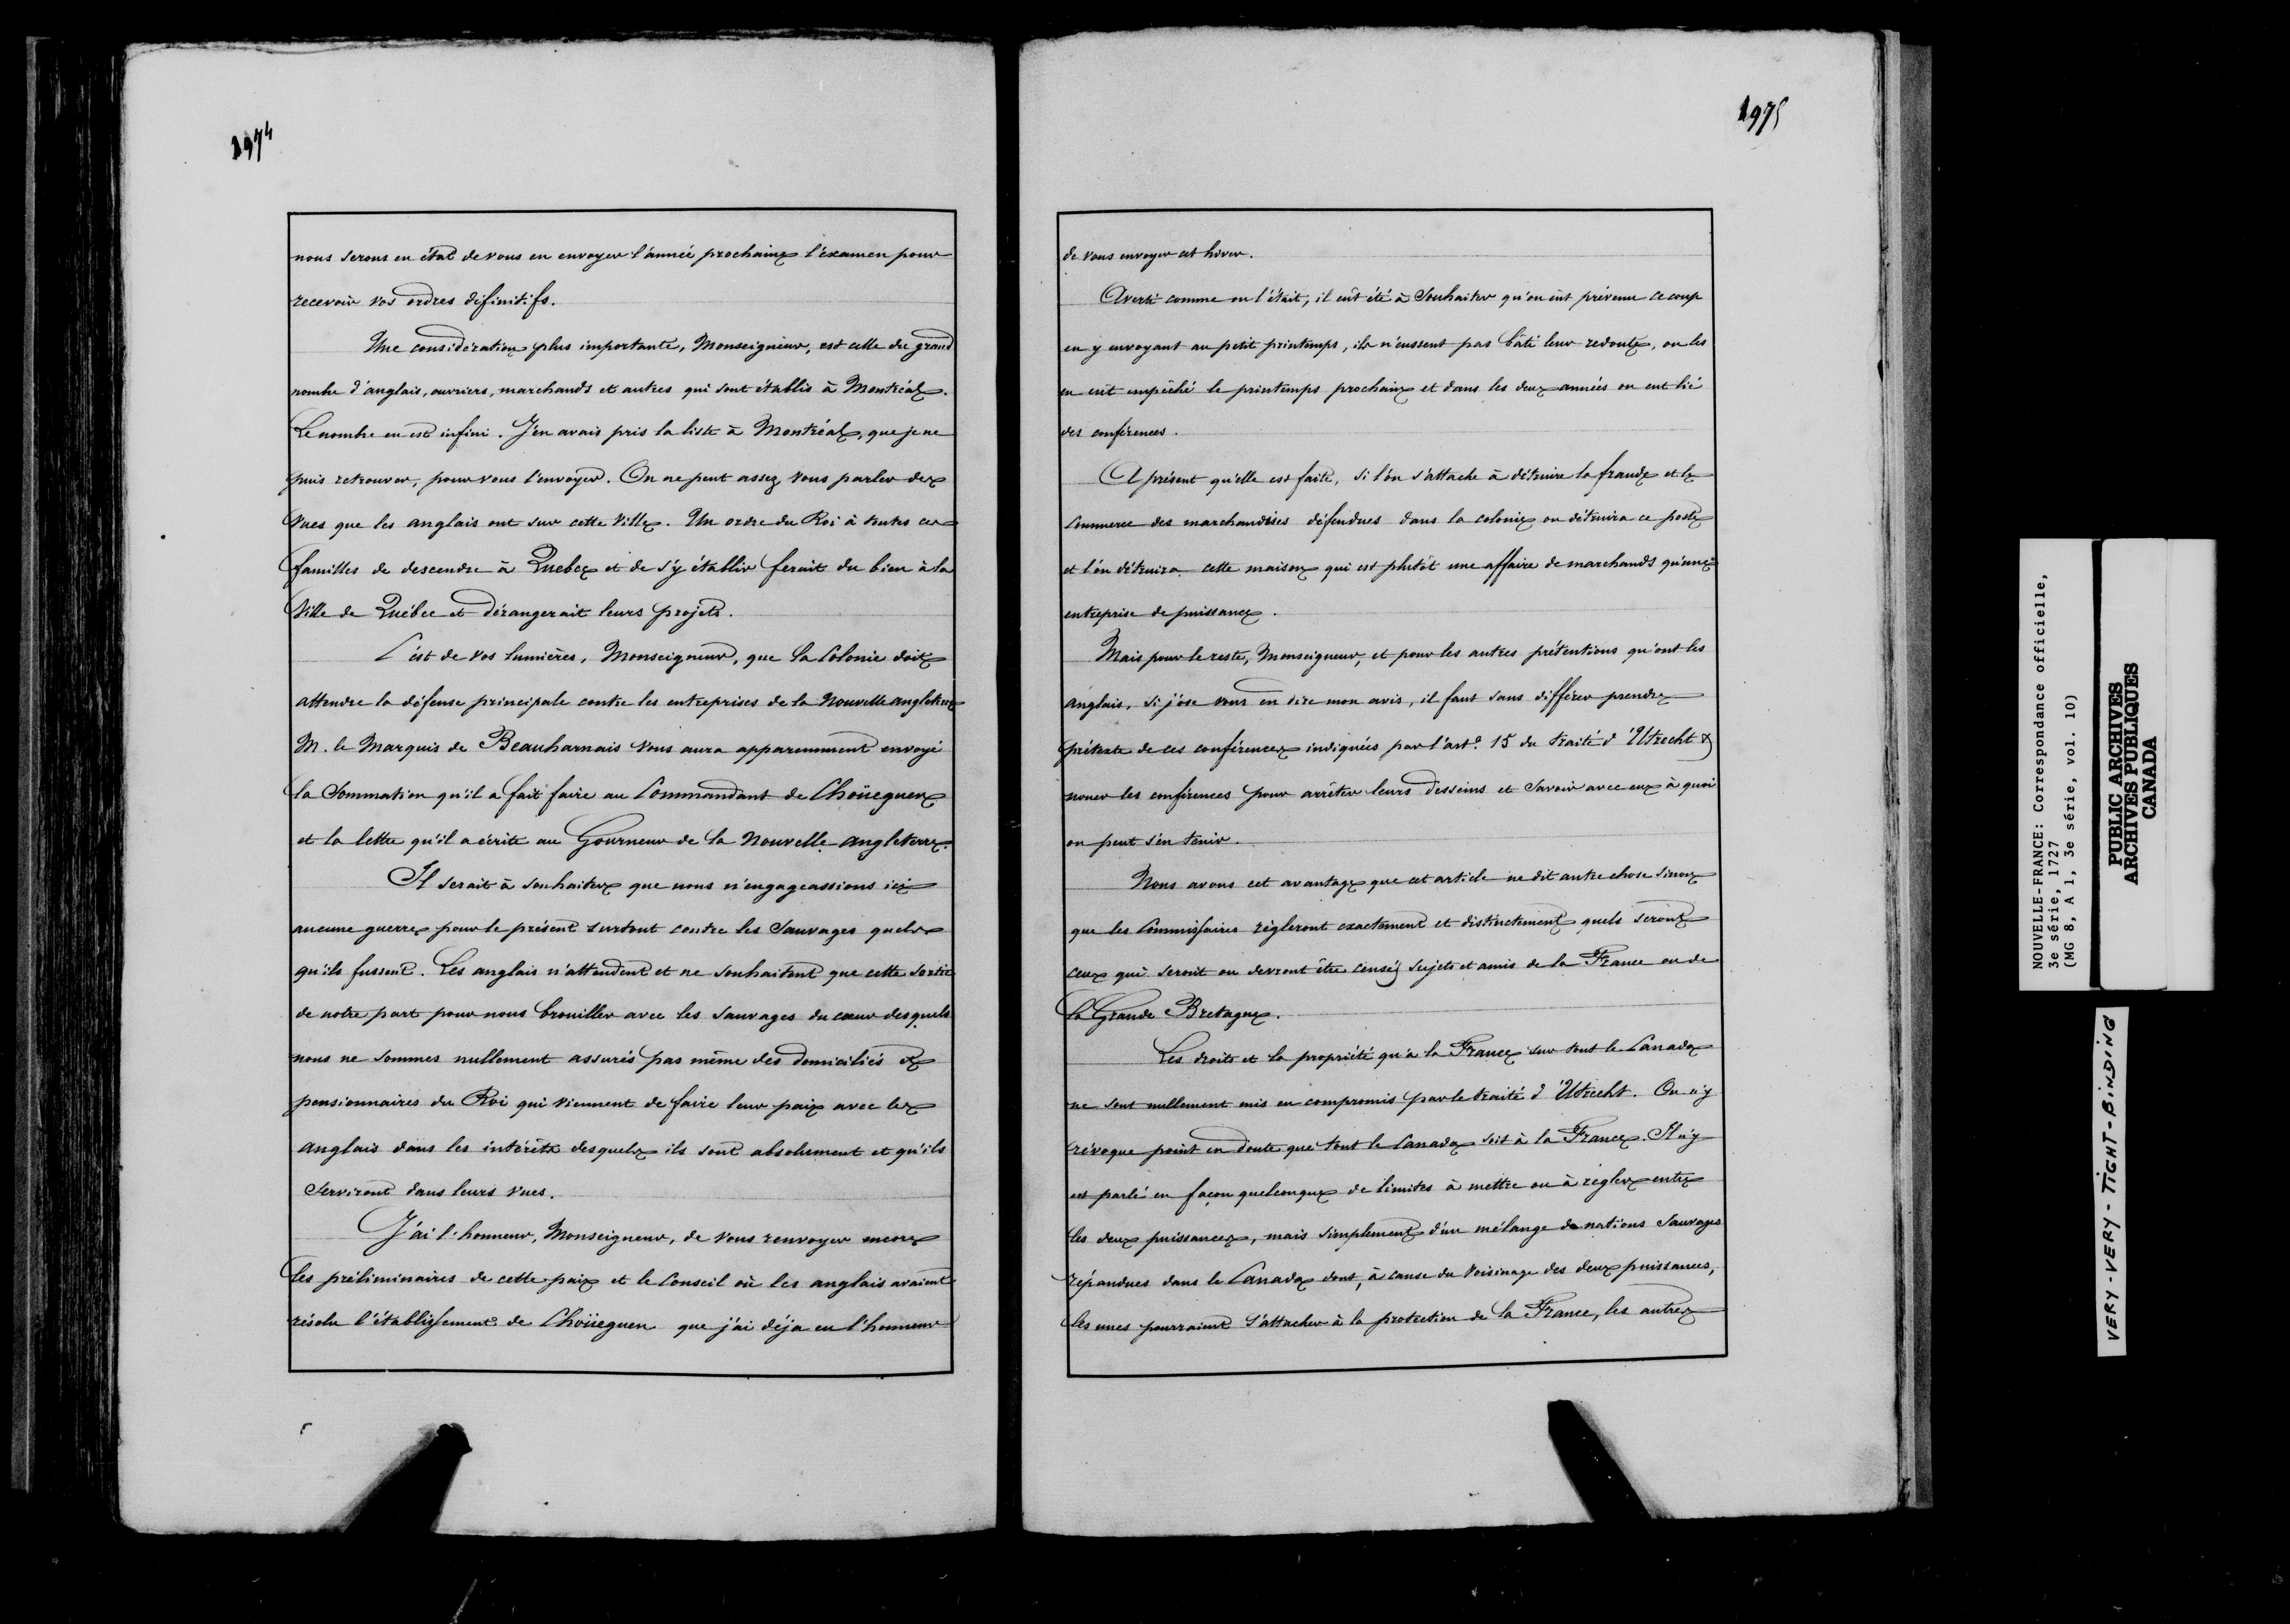 1974
nous serons en état de vous en envoyer l'année prochaine l'examen pour
recevoir vos ordres définitifs.
Une considération plus importante, Monseigneur, est celle du grand
nombre d'anglais, ouvriers, marchands et autres qui sont établis à Montréal.
Le nombre en est infini. J'en avais pris la liste à Montréal, que je ne
puis retrouver, pour vous l'envoyer. On ne peut assez vous parler des
vues que les anglais ont sur cette ville. Un ordre du Roi à toutes ces
familles de descendre à Quebec et de s'y établir ferait du bien à la
ville de Québec et dérangerait leurs projets.
C'est de vos lumières, Monseigneur, que la Colonie doit
attendre la défense principale contre les entreprises de la Nouvelle angleterre
M. le Marquis de Beauharnais vous aura apparemment envoyé
la Sommation qu'il a fait faire au Commandant de Choüeguen
et la lettre qu'il a écrite au Gourneur de la Nouvelle angleterre.
Il serait à souhaiter que nous n'engageassions ici
aucune guerre pour le présent surtout contre les Sauvages quels
qu'ils fussent. Les anglais n'attendent et ne souhaitent que cette sortie
de notre part pour nous brouiller avec les Sauvages du cœur desquels
nous ne sommes nullement assurés pas même des domiciliés et
pensionnaires du Roi qui viennent de faire leur paix avec les
anglais dans les intérêts desquels ils sont absolument et qu'ils
serviront dans leurs vues.
J'ai l'honneur, Monseigneur, de vous renvoyer encore
les préliminaires de cette paix et le Conseil où les anglais avaient
résolu l'établissement de Choüeguen que j'ai déja eu l'honneur
1975
de vous envoyer cet hiver.
Averti comme on l'était, il eût été à Souhaiter qu'on eût prévenu ce coup
en y envoyant au petit printemps, ils n'eussent pas bâti leur redoute, on les
en eût empêché le printemps prochain et dans les deux années on eut lié
des conférences.
A présent qu'elle est faite, si l'on s'attache à détruire la fraude et le
Commerce des marchandises défendues dans la colonie on détruira ce poste
et l'on détruira cette maison qui est plutôt une affaire de marchands qu'une
entreprise de puissance.
Mais pour le reste, Monseigneur, et pour les autres prétentions qu'ont les
anglais, si j'ose vous en dire mon avis, il faut sans différer prendre
prétexte de ces conférences indiquées par l'art. 15 du traité d'Utrecht &
nouer les conférences pour arrêter leurs desseins et savoir avec eux à quoi
on peut s'en tenir.
Nous avons cet avantage que cet article ne dit autre chose sinon
que les Commissaires règleront exactement et distinctement quels seront
ceux qui seront ou devront être censéz sujets et amis de la France ou de
la Grande Bretagne.
Les droits et la propriété qu'a la France sur tout le Canada
ne sont nullement mis en compromis par le traité d'Utrecht. On n'y
révoque point en doute que tout le Canada soit à la France. Il n'y
est parlé en façon quelconque de limites à mettre ou à régler entre
les deux puissances, mais simplement d'un mélange de nations Sauvages
répandues dans le Canada dont, à cause du voisinage des deux puissances,
les unes pourraient s'attacher à la protection de la France, les autres
NOUVELLE-FRANCE: Correspondance officielle,
3e série, 1727
(MG 8, A 1, 3e série, vol. 10)
PUBLIC ARCHIVES
ARCHIVES PUBLIQUES
CANADA
VERY-VERY-TIGHT-BINDING